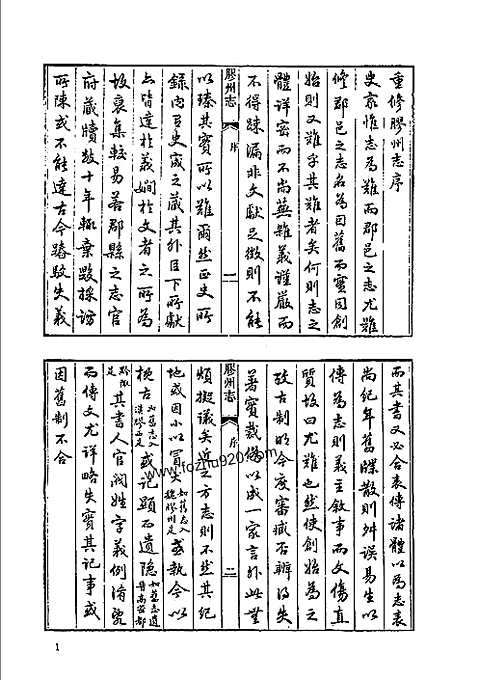 重修膠州志序
史家惟志為難而郡邑之志尤難
修郡邑之志名為因舊而實同創
始則又難乎其難者矣何則志之
體詳密而不尚蕪雜義謹嚴而
不得疎漏非文獻足徵則不能
膠州志
序
一
以臻其實所以難爾然正史所
錄內自史宬之藏其外臣下所獻
上皆達於義嫺於文者之所為
故裒集較易若郡縣之志官
府藏牘數十年輒棄毀採訪
所陳或不能達古今踳駮失義
而其書又必合表傳諸體以為志表
尚紀年舊牒散則舛誤易生以
傳為志則義主敘事而文傷直
質故曰尤難也然使創始為之
攷古制明今度審臧否辨得失
善實裁僞以成一家言外此無
膠州志
序
二
煩擬議矣近之方志則不然其紀
地或因小以冒大
或執今以
概古
或記顯而遺隱
其書人官閥姓字義例淆
而傳文尤詳略失實其記事或
因舊制不合
www.fozhu920.com
1